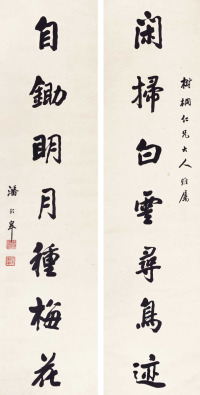 樹桐仁兄大人雅屬
閑掃白雲尋鳥迹
自鋤明月種梅花
潘齡皋